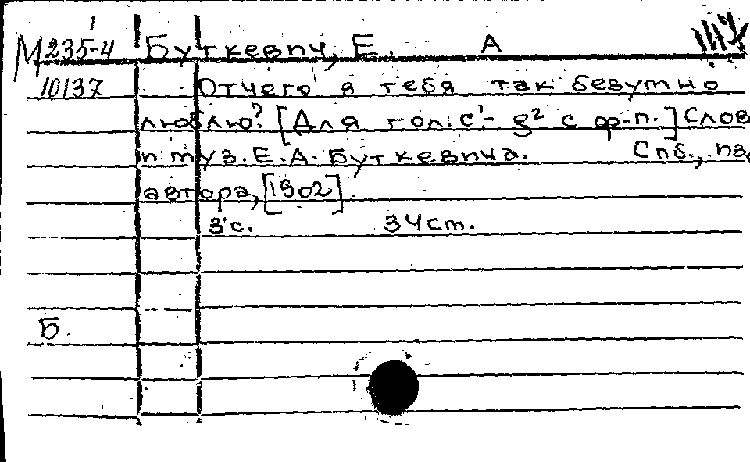 1
М235-4 Буткевич, Е. А
10137 Отчего я тебя так безумно
люблю? [Для гол: c'- g² с ф-п.] Слов
и муз. Е.А. Буткевича. Спб., из
автора, [1902].
3 с. 34 см.
Б.